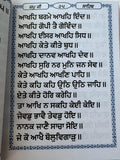 ਜਪੁ ਜੀ ੨੫ ਸਾਹਿਬ
ਆਖਹਿ ਬਰਮੇ ਆਖਹਿ ਇੰਦ॥
ਆਖਹਿ ਗੋਪੀ ਤੈ ਗੋਵਿੰਦ॥
ਆਖਹਿ ਈਸਰ ਆਖਹਿ ਸਿਧ॥
ਆਖਹਿ ਕੇਤੇ ਕੀਤੇ ਬੁਧ॥
ਆਖਹਿ ਦਾਨਵ ਆਖਹਿ ਦੇਵ॥
ਆਖਹਿ ਸੁਰਿ ਨਰ ਮੁਨਿ ਜਨ ਸੇਵ॥
ਕੇਤੇ ਆਖਹਿ ਆਖਣਿ ਪਾਹਿ॥
ਕੇਤੇ ਕਹਿ ਕਹਿ ਉਠਿ ਉਠਿ ਜਾਹਿ॥
ਏਤੇ ਕੀਤੇ ਹੋਰਿ ਕਰੇਹਿ॥
ਤਾ ਆਖਿ ਨ ਸਕਹਿ ਕੇਈ ਕੇਇ॥
ਜੇਵਡੁ ਭਾਵੈ ਤੇਵਡੁ ਹੋਇ॥
ਨਾਨਕ ਜਾਣੈ ਸਾਚਾ ਸੋਇ॥
ਜੇ ਕੋ ਆਖੈ ਬੋਲੁਵਿਗਾੜੁ॥